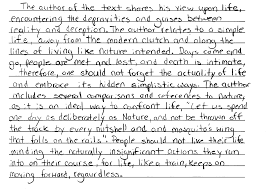 The author of the text shares his view upon life,
encountering the depravities and guises between
reality and deception. The author relates to a simple
life, away from the modern clutch and along the
lines of living like nature intended. Days come and
go, people are met and lost, and death is intimate,
therefore, one should not forget the actuality of life
and embrace its hidden simplistic ways. The author
includes several comparisons and references to nature,
as it is an ideal way to confront life, "Let us spend
one day as deliberately as Nature, and not be thrown off
the track by every nutshell and and mosquito's wing
that falls on the rails". People should not live their life
minding the naturally insignificant actions they run
into on their course, for life, like a train, keeps on
moving forward, regardless.